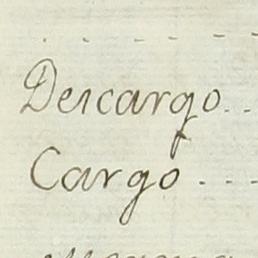 Descargo..
Cargo...